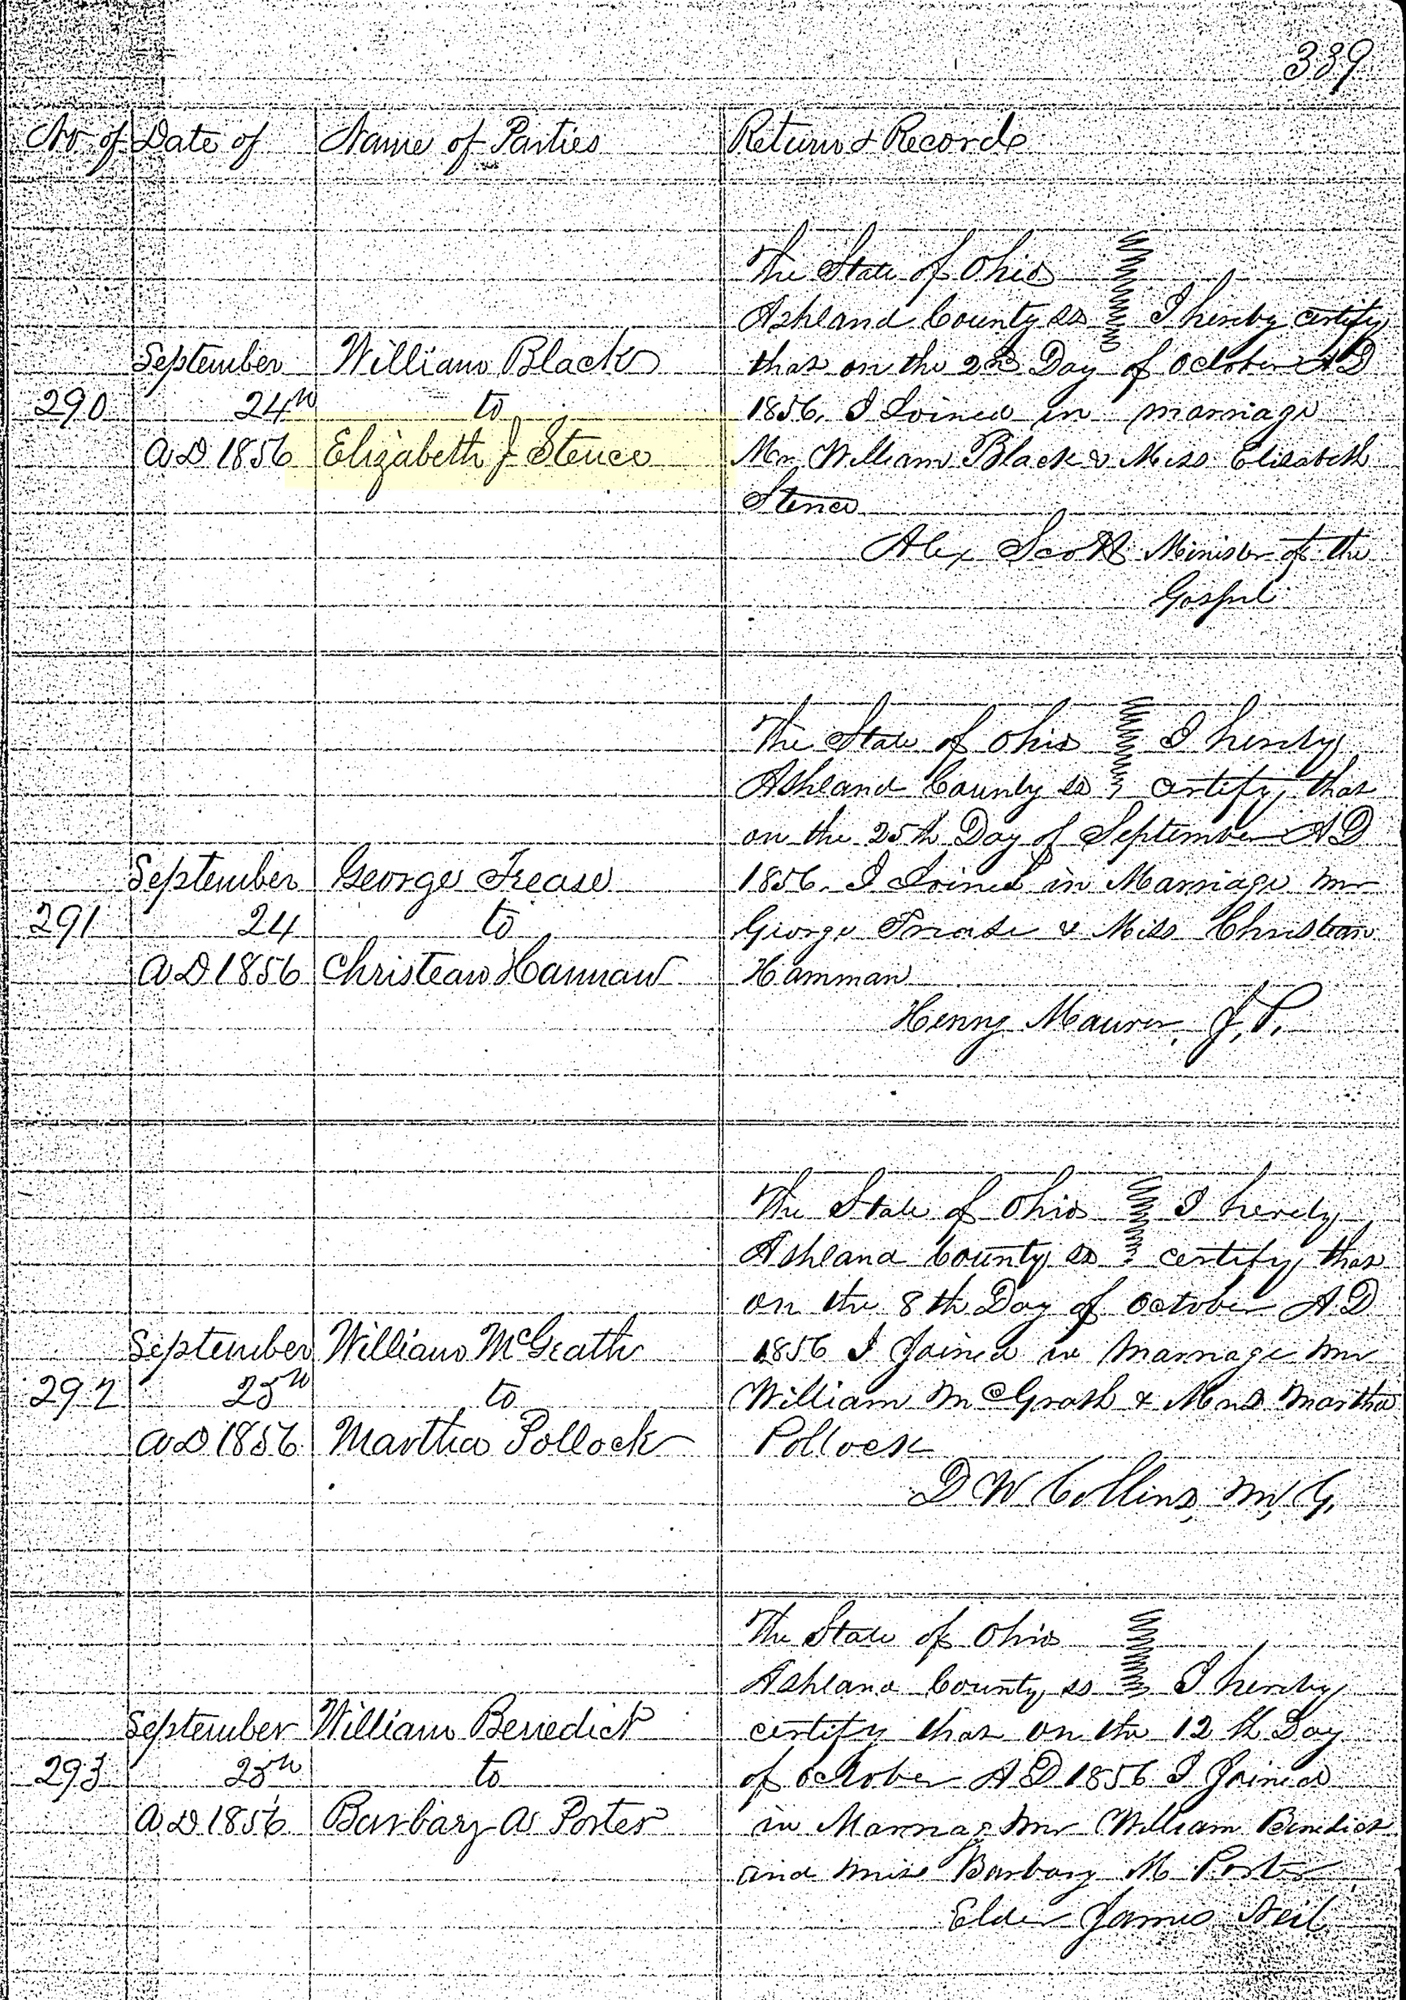 339
No of Date of Name of Parties Return & Record
The State of Ohio
Ashland County ss I hereby certify
that on the 2nd Day of October AD
1856, I Joined in marriage
Mr William Black & Miss Elisabeth
Stence
Alex Scott Minister of the
Gospel
September William Black
290 24th to
AD 1856 Elizabeth J Stence
The State of Ohio I hereby
Ashland County ss certify that
on the 25th Day of September AD
1856. I Joined in Marriage mr
George Frease & Miss Christean
Hamman
Henry Maurer, J, P,
September George Frease
291 24 to
AD 1856 Christean Hamman
The State of Ohio I hereby
Ashland County ss certify that
on the 8th Day of October AD
1856 I Joined in Marriage mr
William McGrath & Mrs Martha
Pollock
D W Collins, M, G,
September William McGrath
292 25th to
AD 1856 Martha Pollock
The State of Ohio
Ashland County ss I hereby
certify that on the 12th Day
of October AD 1856 I Joined
in Marriag mr William Benedict
and miss Barbary M Porter
Elder James Neil
September William Benedict
293 25th to
AD 1856 Barbary A Porter